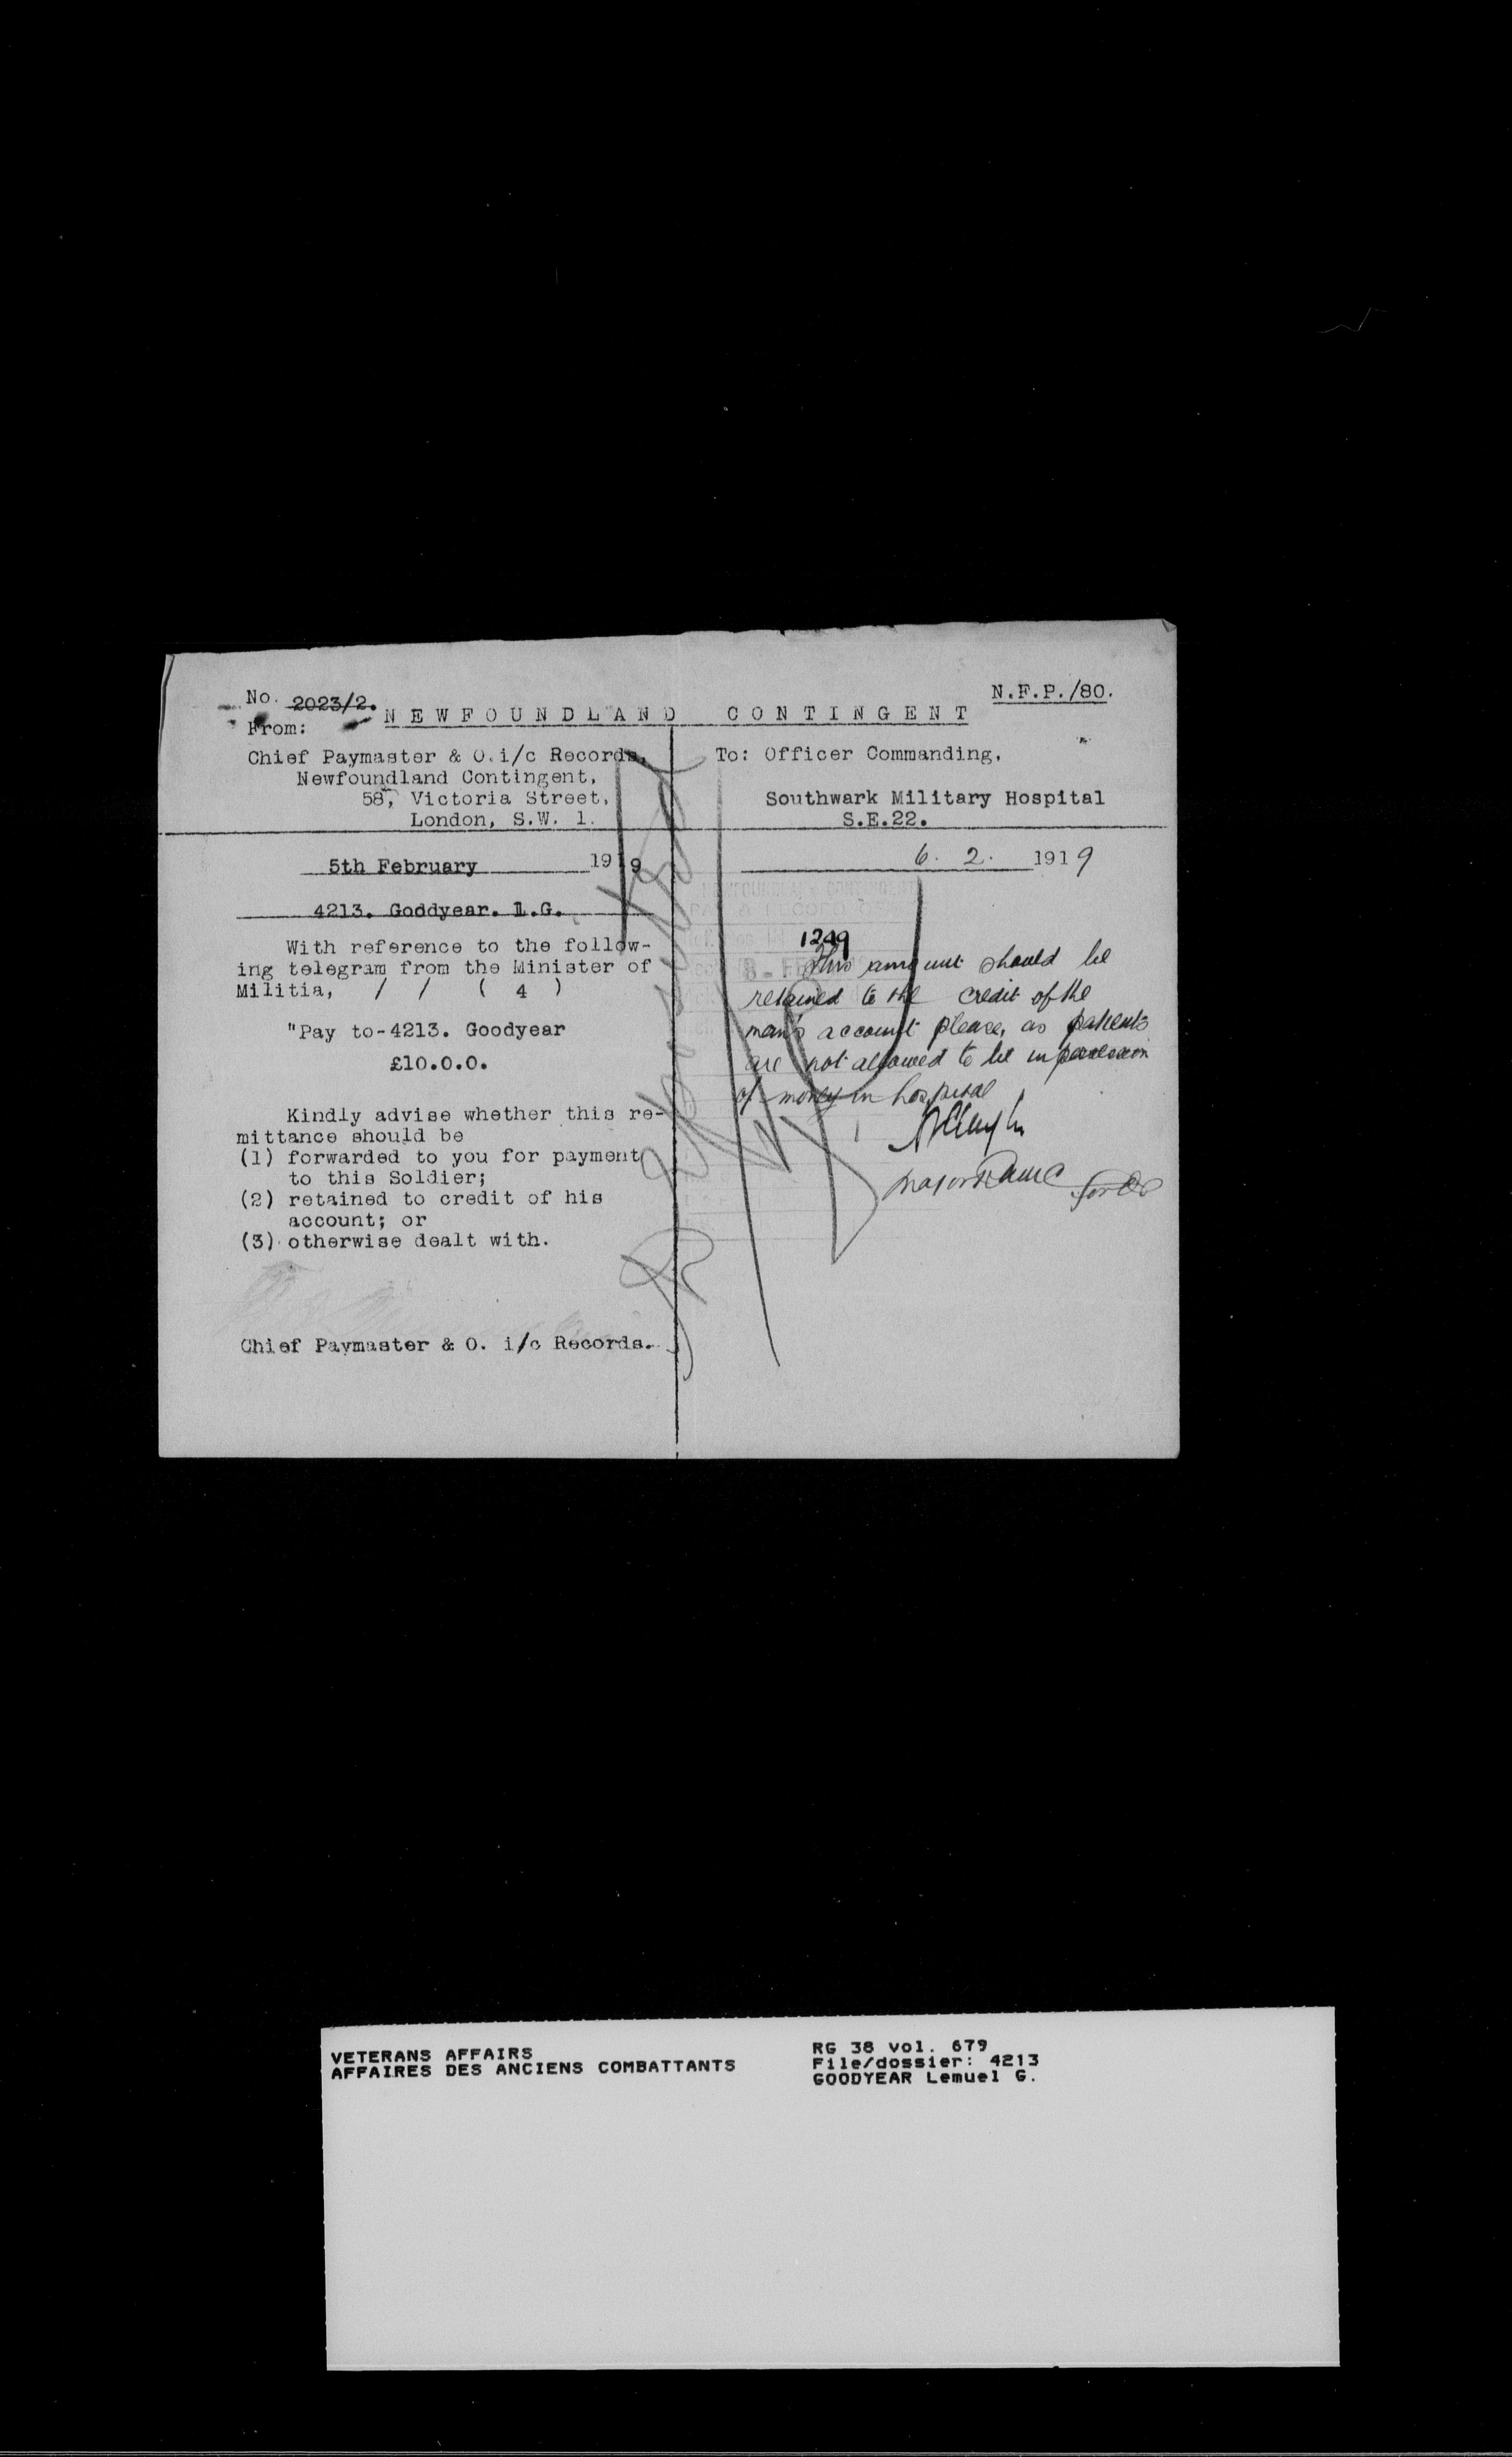 No. 2023/2.
N.F.P./80.
NEWFOUNDLAND CONTINGENT
From:
Chief Paymaster & O.i/c Records,
Newfoundland Contingent,
58, Victoria Street,
London, S.W. 1.
5th February 1919
4213. Goddyear. L.G.
With reference to the follow-
ing telegram from the Minister of
Militia, / / ( 4 )
"Pay to-4213. Goodyear
£10.0.0.
Kindly advise whether this re-
mittance should be
(1) forwarded to you for payment
to this Soldier;
(2) retained to credit of his
account; or
(3) otherwise dealt with.
Chief Paymaster & O. i/c Records.
To: Officer Commanding,
Southwark Military Hospital
S.E.22.
6. 2. 1919
NEWFOUNDLAND CONTINGENT
PAY & RECORD OFFICE
1249
This amount should be
retained to the credit of the
man's account please, as patients
are not allowed to be in possession
of money in hospital
Major RAMC for OC
VETERANS AFFAIRS
AFFAIRES DES ANCIENS COMBATTANTS
RG 38 vol. 679
File/dossier: 4213
GOODYEAR Lemuel G.